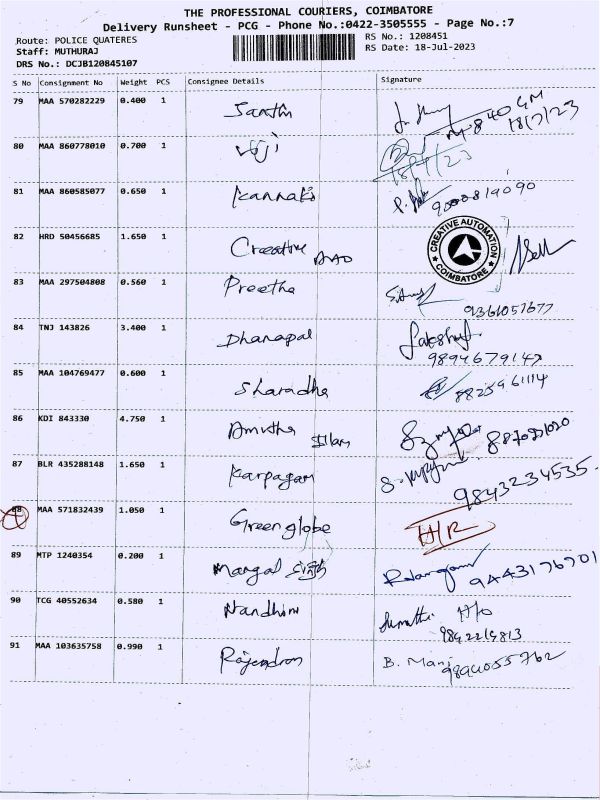 THE PROFESSIONAL COURIERS, COIMBATORE
Delivery Runsheet - PCG - Phone No.:0422-3505555 - Page No.:7
Route: POLICE QUATERES RS No.: 1208451
Staff: MUTHURAJ RS Date: 18-Jul-2023
DRS No.: DCJB120845107
S No Consignment No Weight PCS Consignee Details Signature
79 MAA 570282229 0.400 1 Santhi 18/7/23
80 MAA 860778010 0.700 1 Viji 18/7/23
81 MAA 860585077 0.650 1 Kannaki
82 HRD 50456685 1.650 1 Creative Auto CREATIVE AUTOMATION COIMBATORE
83 MAA 297504808 0.560 1 Preetha 9361051677
84 TNJ 143826 3.400 1 Dhanapal
9894679147
85 MAA 104769477 0.600 1 Sharadha 8825961114
86 KDI 843330 4.750 1 Amutha
87 BLR 435288148 1.650 1 Karpagam
9843234535
88 MAA 571832439 1.050 1 Greenglobe H/R
89 MTP 1240354 0.200 1 Mangal Singh 9443176901
90 TCG 40552634 0.580 1 Nandhini Sumathi H/O
91 MAA 103635758 0.990 1 Rajendran B. Mani
9894055762